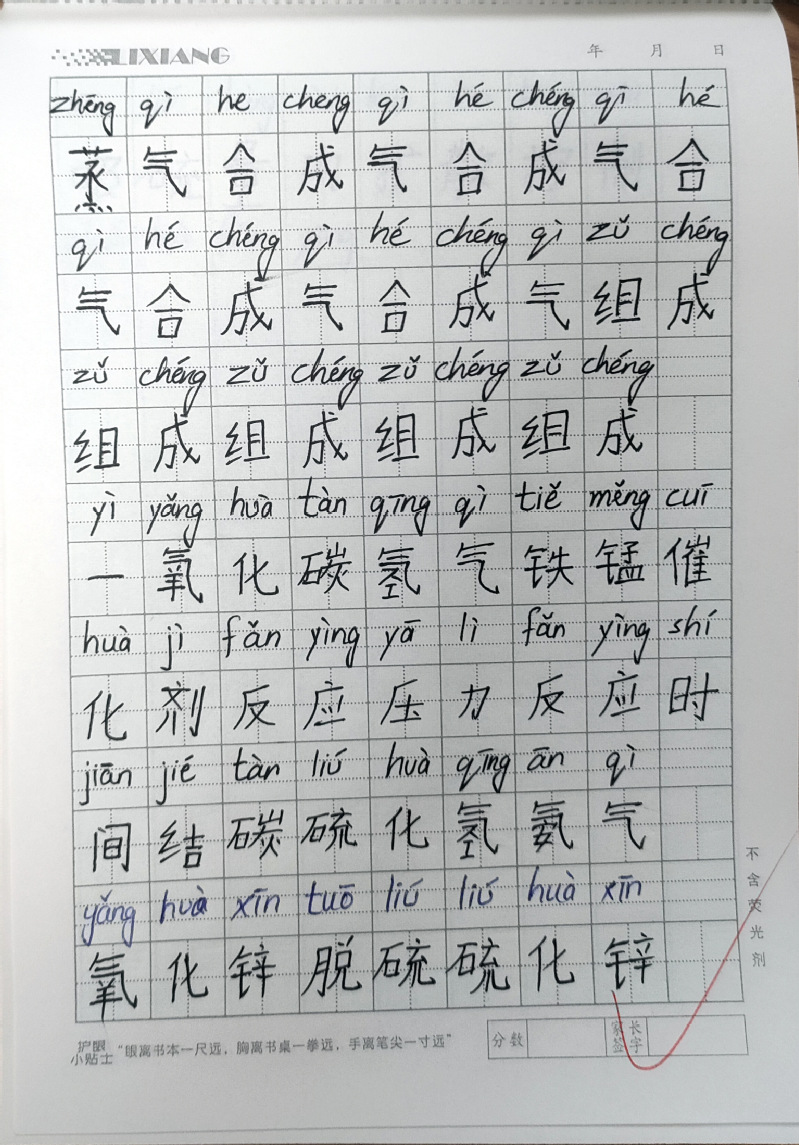 LIXIANG 年 月 日
zhēng qì he cheng qì hé chéng qì hé
蒸 气 合 成 气 合 成 气 合
qì hé chéng qì hé chéng qì zǔ chéng
气 合 成 气 合 成 气 组 成
zǔ chéng zǔ chéng zǔ chéng zǔ chéng
组 成 组 成 组 成 组 成
yì yǎng huà tàn qīng qì tiě měng cuī
一 氧 化 碳 氢 气 铁 锰 催
huà jì fǎn yìng yā lì fǎn yìng shí
化 剂 反 应 压 力 反 应 时
jiān jié tàn liú huà qīng ān qì
间 结 碳 硫 化 氢 氨 气
yǎng huà xīn tuō liú liú huà xīn
氧 化 锌 脱 硫 硫 化 锌
不含荧光剂
护眼小贴士 “眼离书本一尺远，胸离书桌一拳远，手离笔尖一寸远”
分数 家长签字